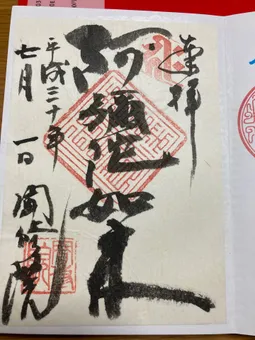 奉拝
阿彌陀如来
平成三十年
七月一日
院